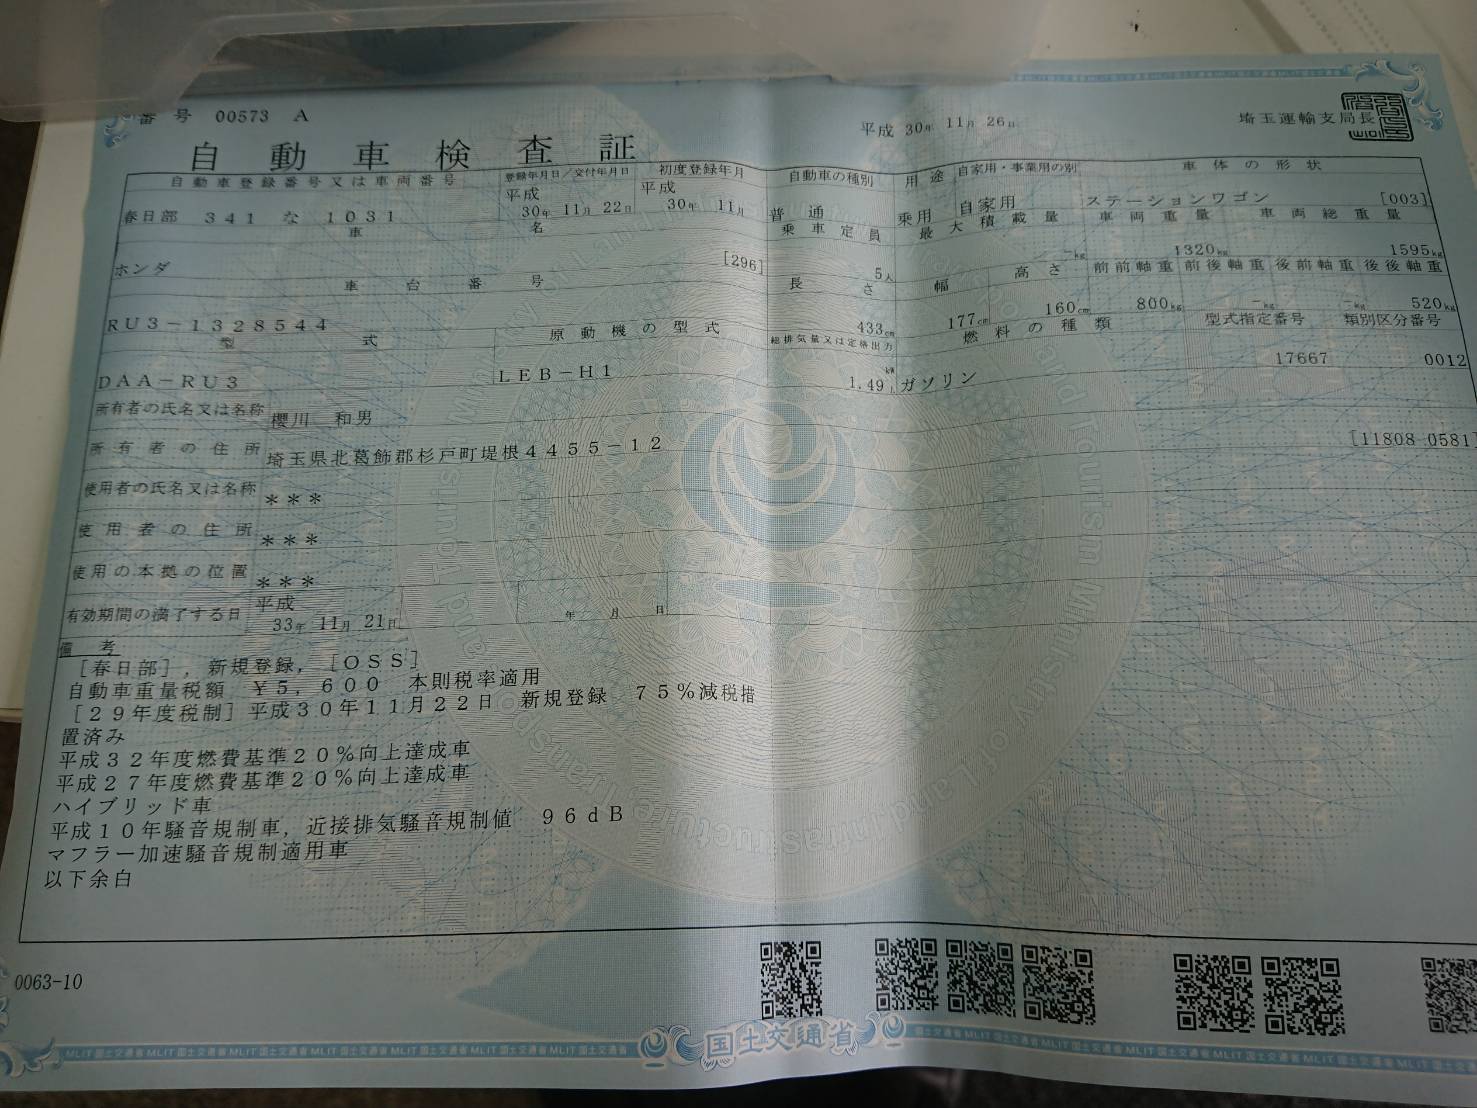 番号 00573 A
平成 30年 11月 26日
埼玉運輸支局長
自動車検査証
自動車登録番号又は車両番号 登録年月日/交付年月日 初度登録年月 自動車の種別 用途 自家用・事業用の別 車体の形状
春日部 341 な 1031 平成 30年 11月 22日 平成 30年 11月 普通 乗用 自家用 ステーションワゴン [003]
車名 乗車定員 最大積載量 車両重量 車両総重量
ホンダ [296] 5人 -kg 1320kg 1595kg
車台番号 長さ 幅 高さ 前前軸重 前後軸重 後前軸重 後後軸重
RU3-1328544 433cm 177cm 160cm 800kg -kg -kg 520kg
型式 原動機の型式 総排気量又は定格出力 燃料の種類 型式指定番号 類別区分番号
DAA-RU3 LEB-H1 kW 1.49L ガソリン 17667 0012
所有者の氏名又は名称 櫻川 和男
所有者の住所 埼玉県北葛飾郡杉戸町堤根4455-12 [11808 0581]
使用者の氏名又は名称 ***
使用者の住所 ***
使用の本拠の位置 ***
有効期間の満了する日 平成 33年 11月 21日 年 月 日
備考
[春日部],新規登録,[OSS]
自動車重量税額 ¥5,600 本則税率適用
[29年度税制]平成30年11月22日 新規登録 75%減税措
置済み
平成32年度燃費基準20%向上達成車
平成27年度燃費基準20%向上達成車
ハイブリッド車
平成10年騒音規制車,近接排気騒音規制値 96dB
マフラー加速騒音規制適用車
以下余白
0063-10
国土交通省